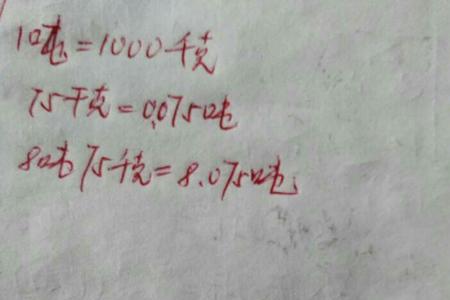 1吨=1000千克
75千克=0.075吨
8吨75千克=8.075吨